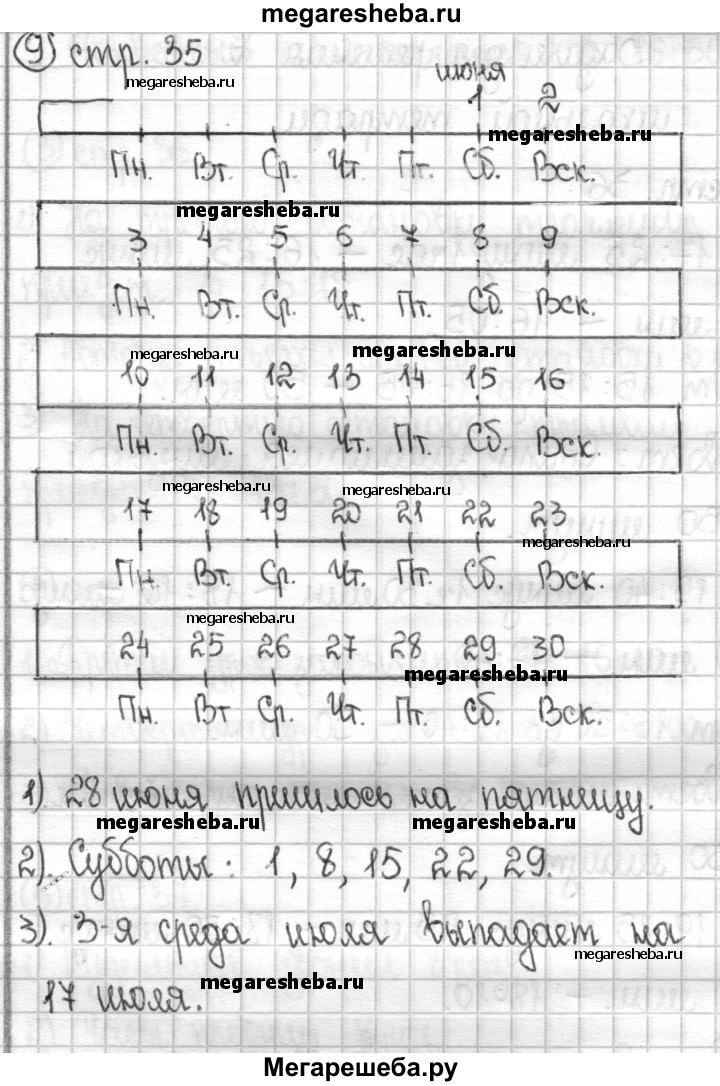 megaresheba.ru
9) стр. 35
megaresheba.ru
июня
1 2
megaresheba.ru
Пн. Вт. Ср. Чт. Пт. Сб. Вск.
megaresheba.ru
3 4 5 6 7 8 9
Пн. Вт. Ср. Чт. Пт. Сб. Вск.
megaresheba.ru megaresheba.ru
10 11 12 13 14 15 16
Пн. Вт. Ср. Чт. Пт. Сб. Вск.
megaresheba.ru megaresheba.ru
17 18 19 20 21 22 23
megaresheba.ru
Пн. Вт. Ср. Чт. Пт. Сб. Вск.
megaresheba.ru
24 25 26 27 28 29 30
megaresheba.ru
Пн. Вт Ср. Чт. Пт. Сб. Вск.
1) 28 июня пришлось на пятницу.
megaresheba.ru megaresheba.ru
2). Субботы: 1, 8, 15, 22, 29.
3). 3-я среда июля выпадает на
megaresheba.ru
17 июля.
megaresheba.ru
Мегарешеба.ру